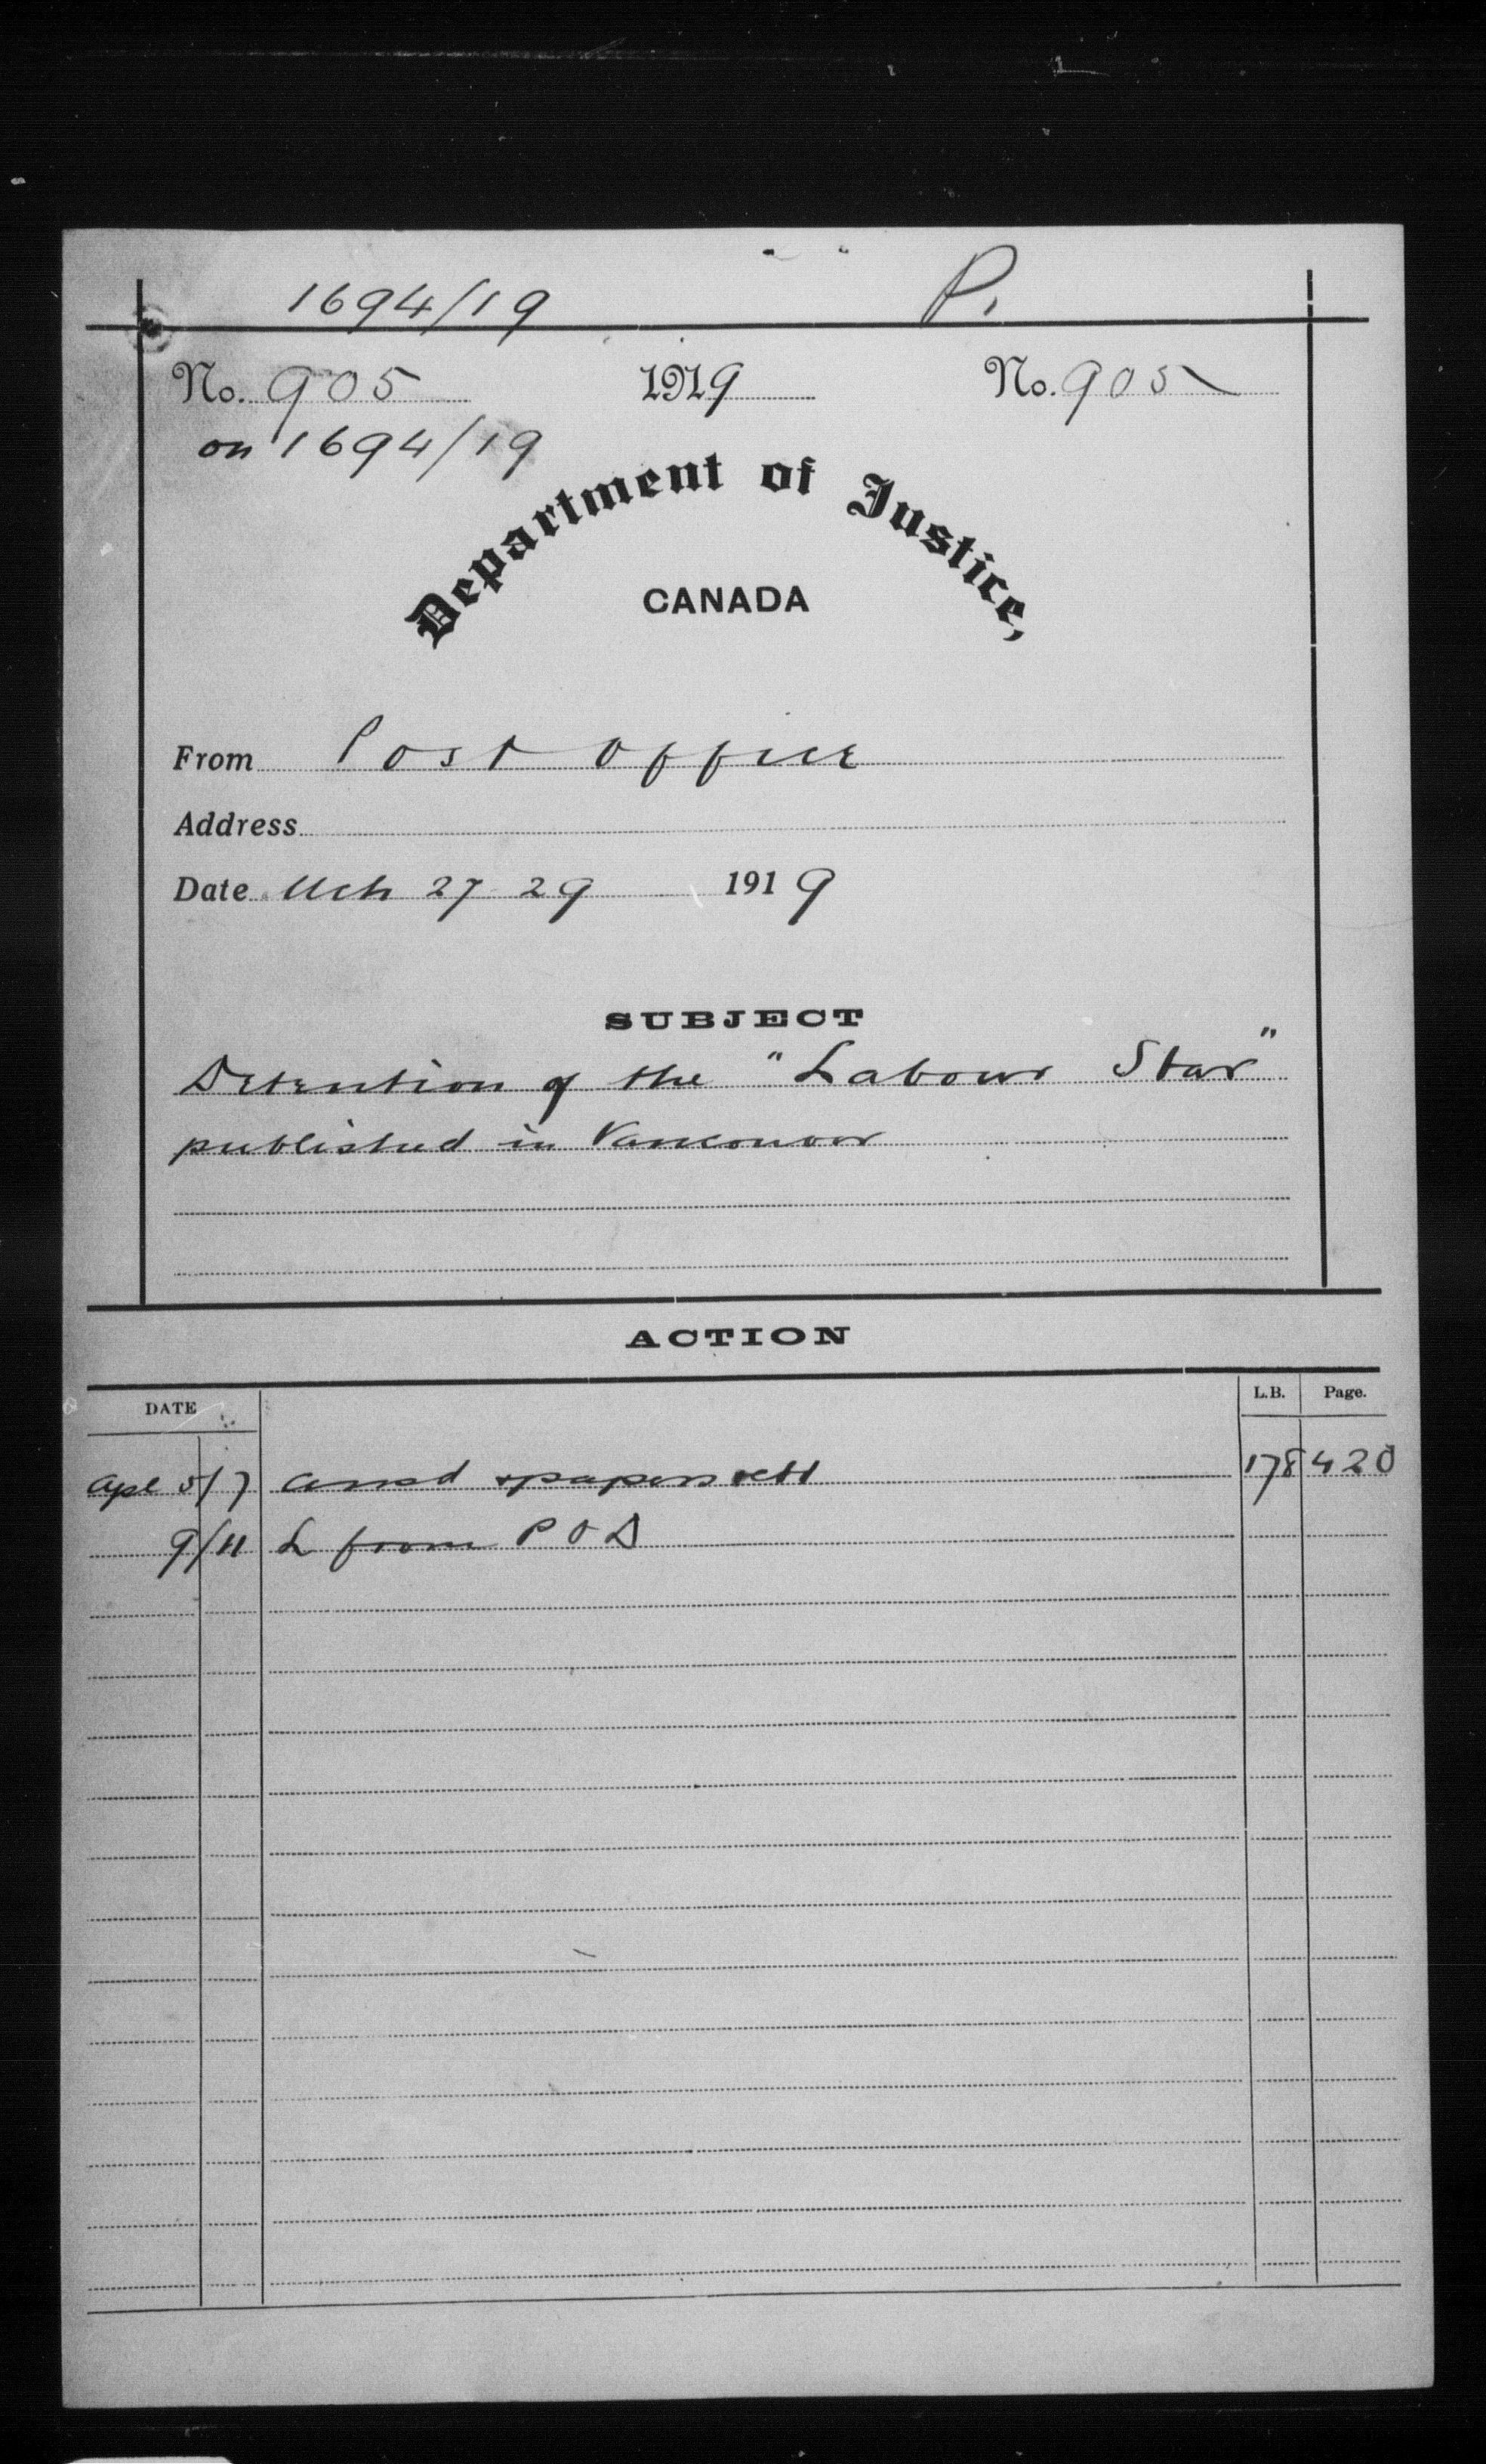 1694/19 P.
No. 905 1919 No. 905
on 1694/19
Department of Justice,
CANADA
From Post Office
Address
Date Mch 27 29 1919
SUBJECT
Detention of the "Labour Star"
published in Vancouver
ACTION
DATE L.B. Page.
Apl 5/7 ansd & papers retd 178 420
9/11 L from P O D